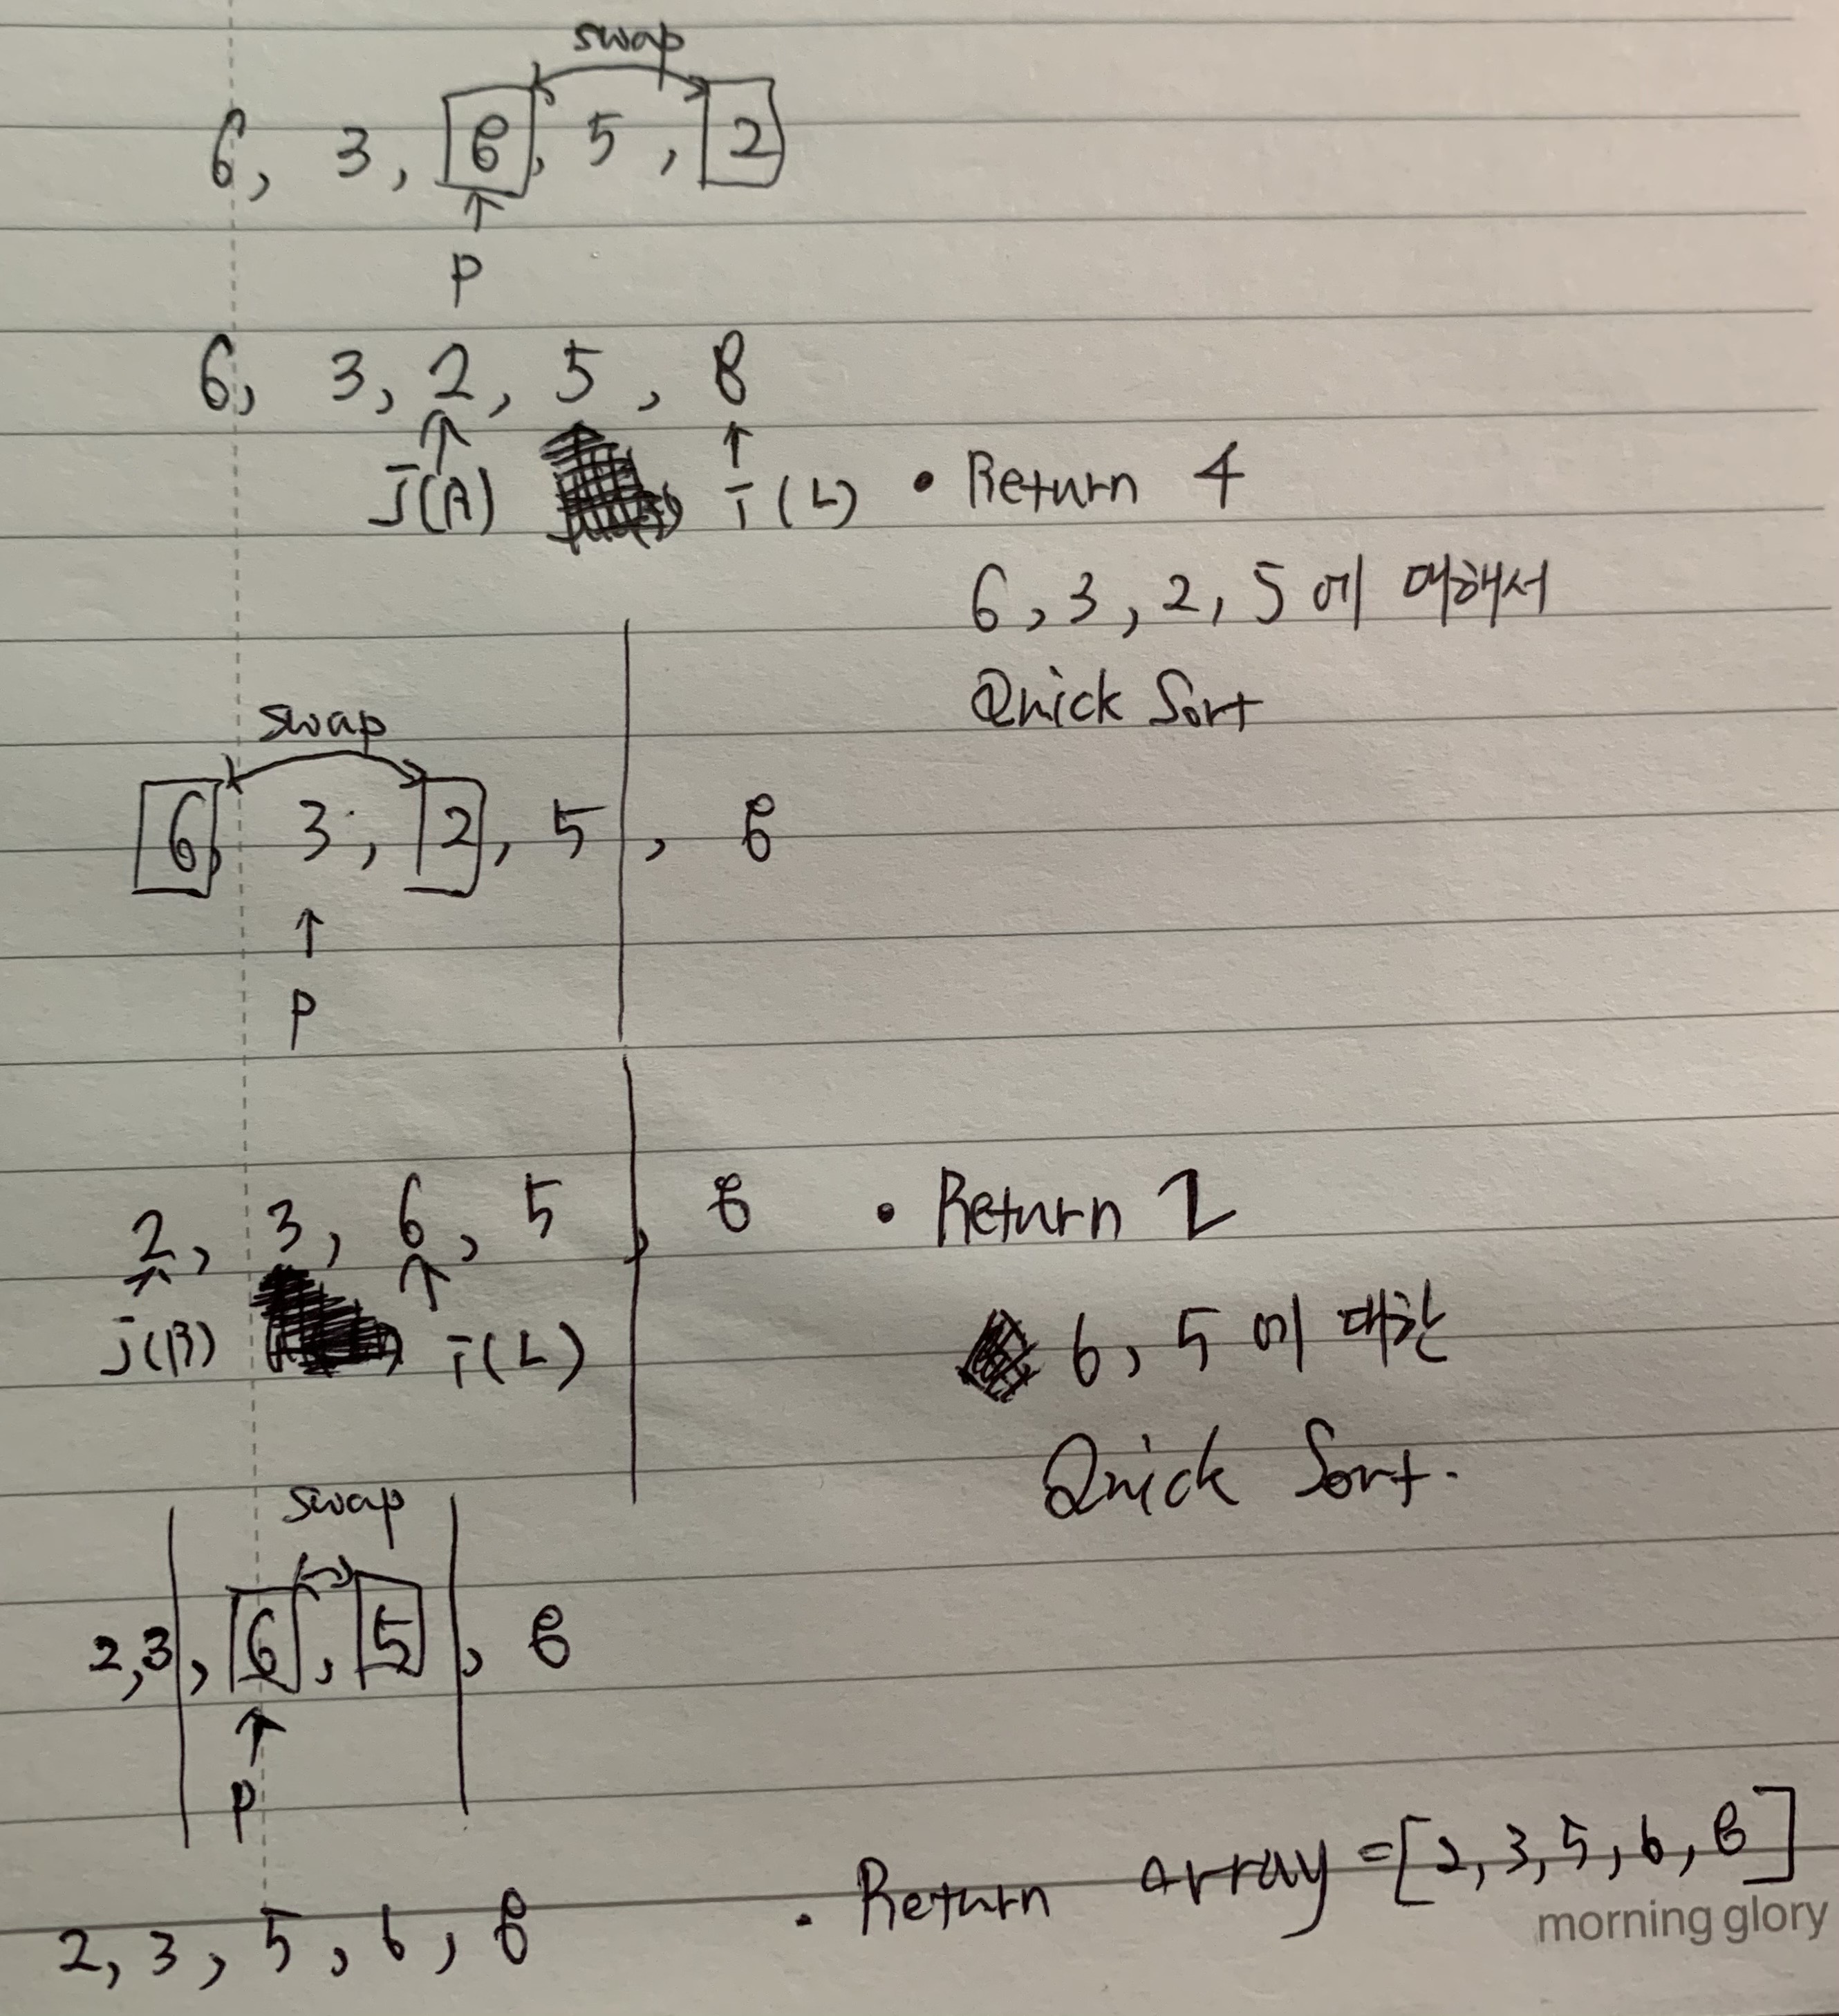 swap
6, 3, 8, 5, 2
P
6, 3, 2, 5, 8
j(R) i(L) • Return 4
6, 3, 2, 5 에 대해서
Quick Sort
swap
6, 3, 2, 5, 8
P
2, 3, 6, 5, 8 • Return 2
j(R) i(L)
6, 5 에 대한
Quick Sort.
swap
2,3, 6, 5, 8
P
2, 3, 5, 6, 8 • Return array = [2, 3, 5, 6, 8]
morning glory